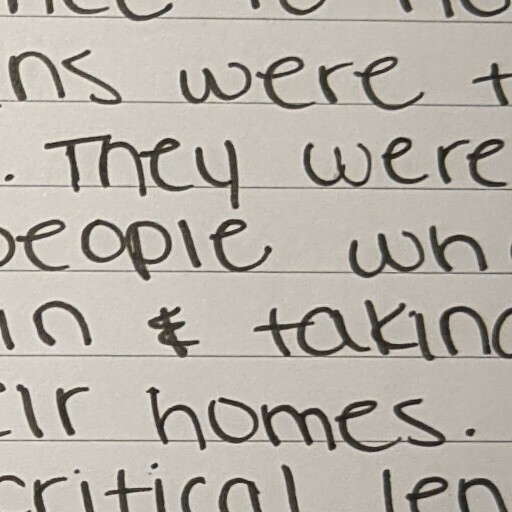 ns were t
. They were
people wh
in & taking
eir homes.
critical len